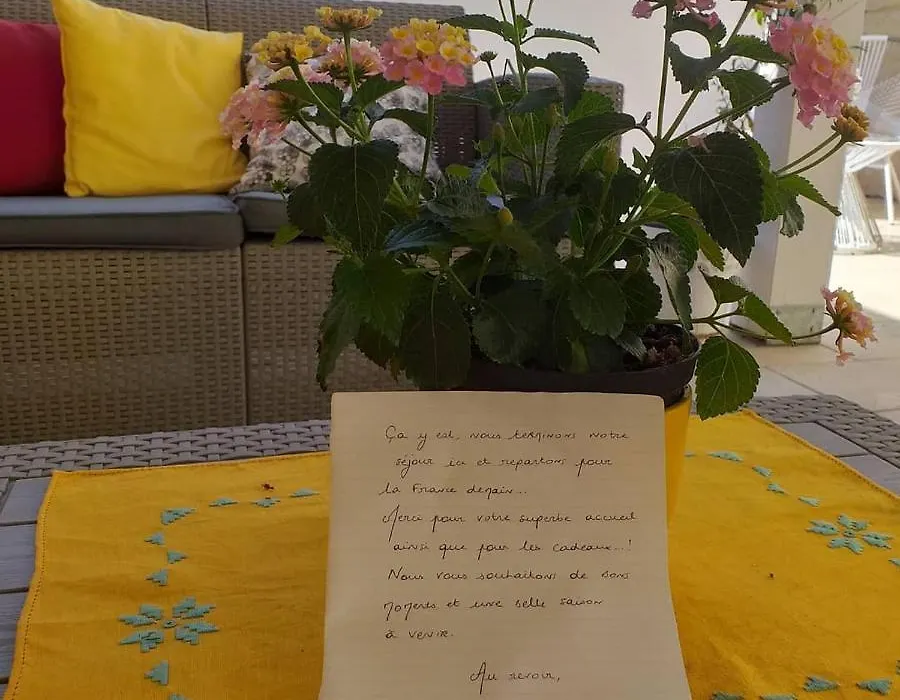 Ça y est, nous terminons notre
séjour ici et repartons pour
la France demain...
Merci pour votre superbe accueil
ainsi que pour les cadeaux...!
Nous vous souhaitons de bons
moments et une belle saison
à venir.
Au revoir,